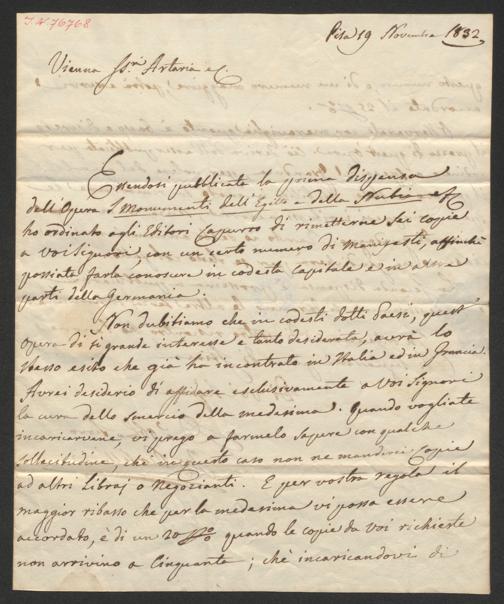 I.N. 76768
Pisa 19 Novembre 1832
Vienna SS.ri Artaria e C.
Essendosi pubblicata la prima dispensa
dell'Opera I Monumenti dell'Egitto e della Nubia
ho ordinato agli Editori Capurro di rimetterne Sei copie
a Voi Signori, con un certo numero di Manifesti, affinchè
possiate farla conoscere in codesta Capitale e in altre
parti della Germania.
Non dubitiamo che in codesti dotti Paesi, quest'
Opera di sì grande interesse e tanto desiderata, avrà lo
stesso esito che già ha incontrato in Italia ed in Francia.
Avrei desiderio di affidare esclusivamente a Voi Signori
la cura dello smercio della medesima. Quando vogliate
incaricarvene, vi prego a farmelo sapere con qualche
sollecitudine, chè in questo caso non ne manderei Copie
ad altri Libraj o Negozianti. E per vostra regola il
maggior ribasso che per la medesima vi possa essere
accordato, è di un 20 p% quando le copie da Voi richieste
non arrivino a Cinquante; chè incaricandovi di